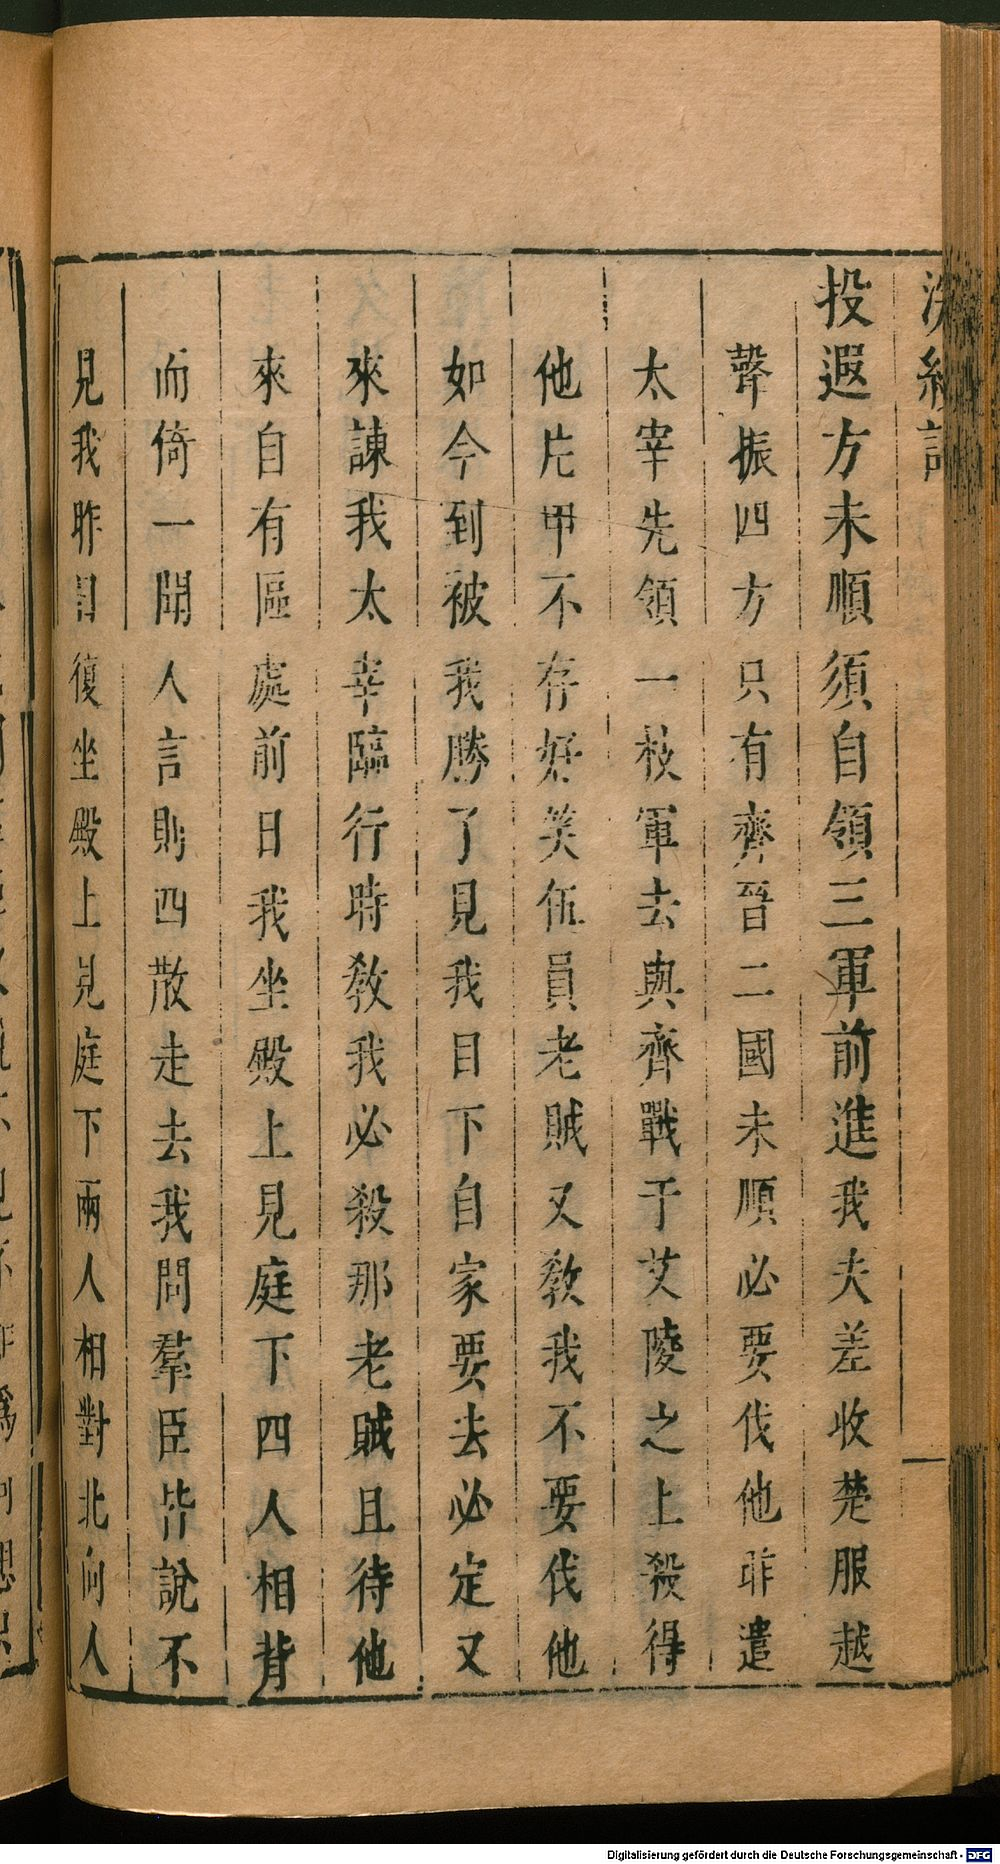 浣紗記
投遐方未順須自領三軍前進我夫差收楚服越
聲振四方只有齊晉二國未順必要伐他昨遣
太宰先領一枝軍去與齊戰于艾陵之上殺得
他片甲不存好笑伍員老賊又教我不要伐他
如今到被我勝了見我目下自家要去必定又
來諫我太宰臨行時教我必殺那老賊且待他
來自有區處前日我坐殿上見庭下四人相背
而倚一聞人言則四散走去我問羣臣皆說不
見我昨日復坐殿上見庭下兩人相對北向人
Digitalisierung gefördert durch die Deutsche Forschungsgemeinschaft - DFG